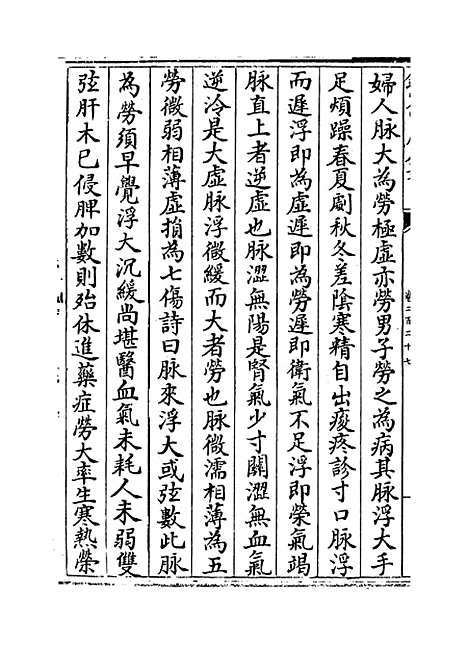 婦人脉大為勞極虛亦勞男子勞之為病其脉浮大手
足煩躁春夏劇秋冬差陰寒精自出痠疼診寸口脉浮
而遲浮即為虛遲即為勞遲即衛氣不足浮即榮氣竭
脉直上者逆虛也脉澀無陽是腎氣少寸關澀無血氣
逆冷是大虛脉浮微緩而大者勞也脉微濡相薄為五
勞微弱相薄虛損為七傷詩曰脉來浮大或弦數此脉
為勞須早覺浮大沉緩尚堪醫血氣未耗人未弱雙
弦肝木已侵脾加數則殆休進藥症勞大率生寒熱榮
卷二百二十七